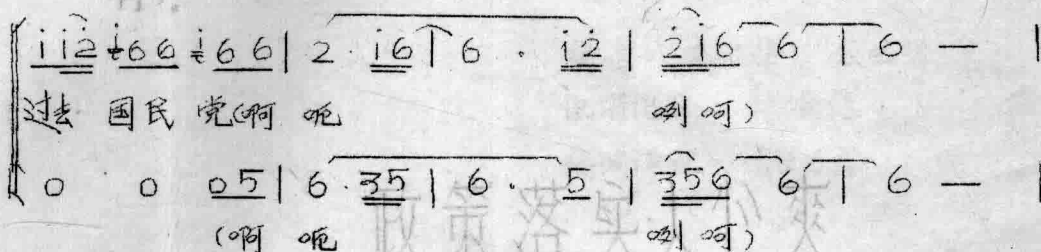 i i 2 i 6 6 i 6 6 | 2 · i 6 | 6 · i 2 | 2 i 6 6 | 6 — |
过去 国民 党(啊 呃 咧 呵)
0 0 0 5 | 6 · 3 5 | 6 · 5 | 3 5 6 6 | 6 — |
(啊 呃 咧 呵)